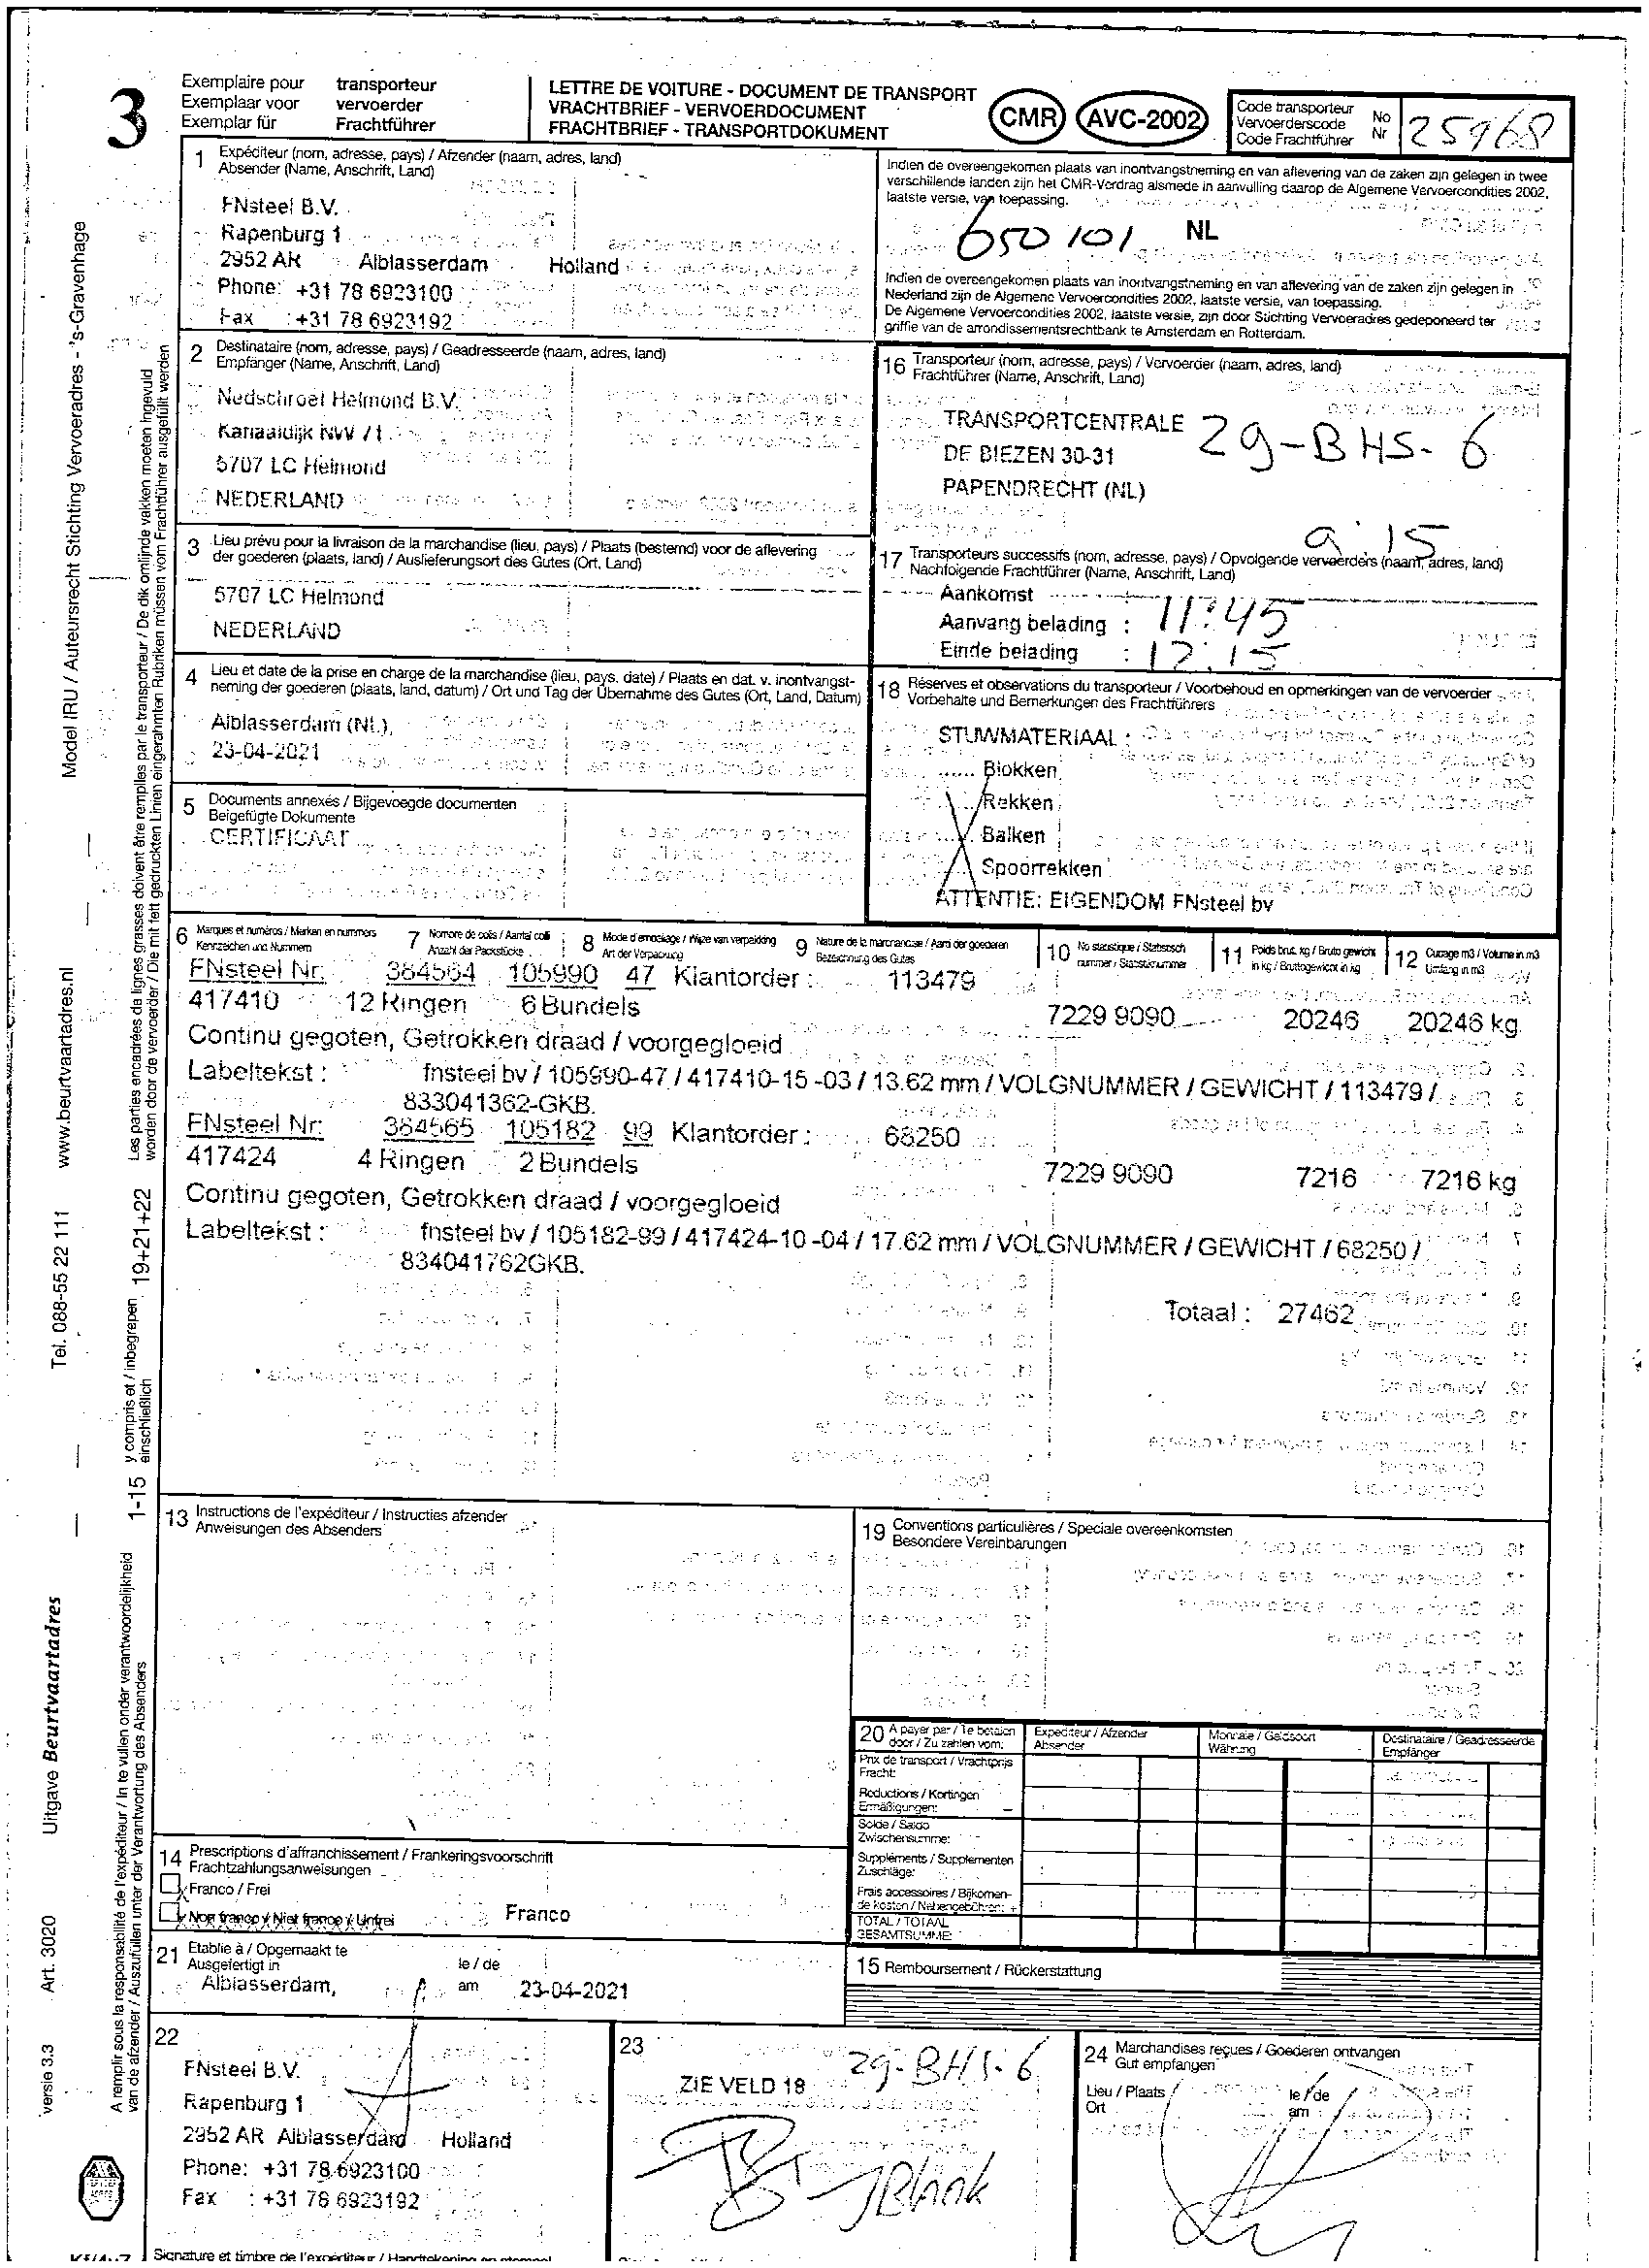 3
Exemplaire pour transporteur
Exemplaar voor vervoerder
Exemplar für Frachtführer
LETTRE DE VOITURE - DOCUMENT DE TRANSPORT
VRACHTBRIEF - VERVOERDOCUMENT
FRACHTBRIEF - TRANSPORTDOKUMENT
CMR AVC-2002
Code transporteur No
Vervoerderscode Nr
Code Frachtführer
25968
1 Expéditeur (nom, adresse, pays) / Afzender (naam, adres, land)
Absender (Name, Anschrift, Land)
FNsteel B.V.
Rapenburg 1
2952 AR Alblasserdam Holland
Phone: +31 78 6923100
Fax : +31 78 6923192
Indien de overeengekomen plaats van inontvangstneming en van aflevering van de zaken zijn gelegen in twee
verschillende landen zijn het CMR-Verdrag alsmede in aanvulling daarop de Algemene Vervoercondities 2002,
laatste versie, van toepassing.
650101 NL
Indien de overeengekomen plaats van inontvangstneming en van aflevering van de zaken zijn gelegen in
Nederland zijn de Algemene Vervoercondities 2002, laatste versie, van toepassing.
De Algemene Vervoercondities 2002, laatste versie, zijn door Stichting Vervoeradres gedeponeerd ter
griffie van de arrondissementsrechtbank te Amsterdam en Rotterdam.
2 Destinataire (nom, adresse, pays) / Geadresseerde (naam, adres, land)
Empfänger (Name, Anschrift, Land)
Nedschroef Helmond B.V.
Kanaaldijk NW 71
5707 LC Helmond
NEDERLAND
16 Transporteur (nom, adresse, pays) / Vervoerder (naam, adres, land)
Frachtführer (Name, Anschrift, Land)
TRANSPORTCENTRALE
DE BIEZEN 30-31
PAPENDRECHT (NL)
29-BHS-6
3 Lieu prévu pour la livraison de la marchandise (lieu, pays) / Plaats (bestemd) voor de aflevering
der goederen (plaats, land) / Auslieferungsort des Gutes (Ort, Land)
5707 LC Helmond
NEDERLAND
9:15
17 Transporteurs successifs (nom, adresse, pays) / Opvolgende vervoerders (naam, adres, land)
Nachfolgende Frachtführer (Name, Anschrift, Land)
Aankomst
Aanvang belading : 11:45
Einde belading : 12:15
4 Lieu et date de la prise en charge de la marchandise (lieu, pays, date) / Plaats en dat. v. inontvangst-
neming der goederen (plaats, land, datum) / Ort und Tag der Übernahme des Gutes (Ort, Land, Datum)
Alblasserdam (NL),
23-04-2021
18 Réserves et observations du transporteur / Voorbehoud en opmerkingen van de vervoerder
Vorbehalte und Bemerkungen des Frachtführers
STUWMATERIAAL :
...... Blokken
Rekken
Balken
Spoorrekken
ATTENTIE: EIGENDOM FNsteel bv
5 Documents annexés / Bijgevoegde documenten
Beigefügte Dokumente
CERTIFICAAT
6 Marques et numéros / Merken en nummers
Kennzeichen und Nummern
7 Nombre de colis / Aantal colli
Anzahl der Packstücke
8 Mode d'emballage / Wijze van verpakking
Art der Verpackung
9 Nature de la marchandise / Aard der goederen
Bezeichnung des Gutes
10 No statistique / Statistisch
nummer / Statistiknummer
11 Poids brut, kg / Bruto gewicht
in kg / Bruttogewicht in kg
12 Cubage m3 / Volume in m3
Umfang in m3
FNsteel Nr: 364564 105990 47 Klantorder : 113479
417410 12 Ringen 6 Bundels 7229 9090 20246 20246 kg
Continu gegoten, Getrokken draad / voorgegloeid
Labeltekst : fnsteel bv / 105990-47 / 417410-15 -03 / 13.62 mm / VOLGNUMMER / GEWICHT / 113479 /
833041362-GKB.
FNsteel Nr: 364565 105182 99 Klantorder : 68250
417424 4 Ringen 2 Bundels 7229 9090 7216 7216 kg
Continu gegoten, Getrokken draad / voorgegloeid
Labeltekst : fnsteel bv / 105182-99 / 417424-10 -04 / 17.62 mm / VOLGNUMMER / GEWICHT / 68250 /
834041762GKB.
Totaal : 27462
13 Instructions de l'expéditeur / Instructies afzender
Anweisungen des Absenders
19 Conventions particulières / Speciale overeenkomsten
Besondere Vereinbarungen
20 A payer par / Te betalen
door / Zu zahlen vom:
Expéditeur / Afzender
Absender
Monnaie / Geldsoort
Währung
Destinataire / Geadresseerde
Empfänger
Prix de transport / Vrachtprijs
Fracht:
Reductions / Kortingen
Ermäßigungen: –
Solde / Saldo
Zwischensumme:
Suppléments / Supplementen
Zuschläge:
Frais accessoires / Bijkomen-
de kosten / Nebengebühren: +
TOTAL / TOTAAL
GESAMTSUMME:
14 Prescriptions d'affranchissement / Frankeringsvoorschrift
Frachtzahlungsanweisungen
Franco / Frei
Non franco / Niet franco / Unfrei
Franco
21 Etablie à / Opgemaakt te
Ausgefertigt in
le / de
am
Alblasserdam, 23-04-2021
15 Remboursement / Rückerstattung
22
FNsteel B.V.
Rapenburg 1
2952 AR Alblasserdam Holland
Phone: +31 78 6923100
Fax : +31 78 6923192
23
29-BHS-6
ZIE VELD 18
24 Marchandises reçues / Goederen ontvangen
Gut empfangen
Lieu / Plaats
Ort
le / de
am
Signature et timbre de l'expéditeur / Handtekening en stempel
Model IRU / Auteursrecht Stichting Vervoeradres - 's-Gravenhage
www.beurtvaartadres.nl
Tel. 088-55 22 111
Uitgave Beurtvaartadres
Art. 3020
versie 3.3
Les parties encadrées de lignes grasses doivent être remplies par le transporteur / De dik omlijnde vakken moeten ingevuld
worden door de vervoerder / Die mit fett gedruckten Linien eingerahmten Rubriken müssen vom Frachtführer ausgefüllt werden
19+21+22
y compris et / inbegrepen
einschließlich
1-15
A remplir sous la responsabilité de l'expéditeur / In te vullen onder verantwoordelijkheid
van de afzender / Auszufüllen unter der Verantwortung des Absenders